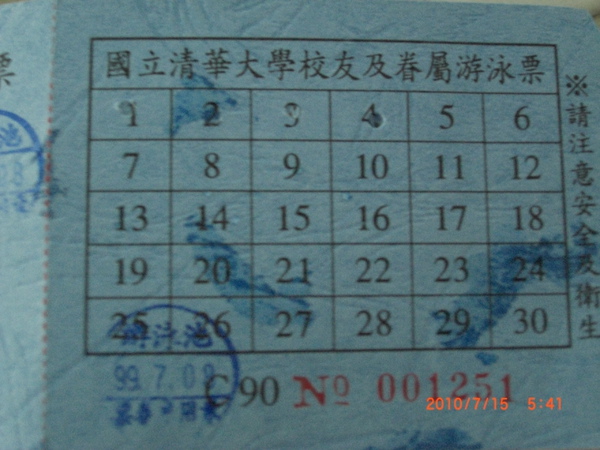 國立清華大學校友及眷屬游泳票
1 2 3 4 5 6
7 8 9 10 11 12
13 14 15 16 17 18
19 20 21 22 23 24
25 26 27 28 29 30
※請注意安全及衛生
游泳池
99.7.08
C90 № 001251
票
池
2010/7/15 5:41